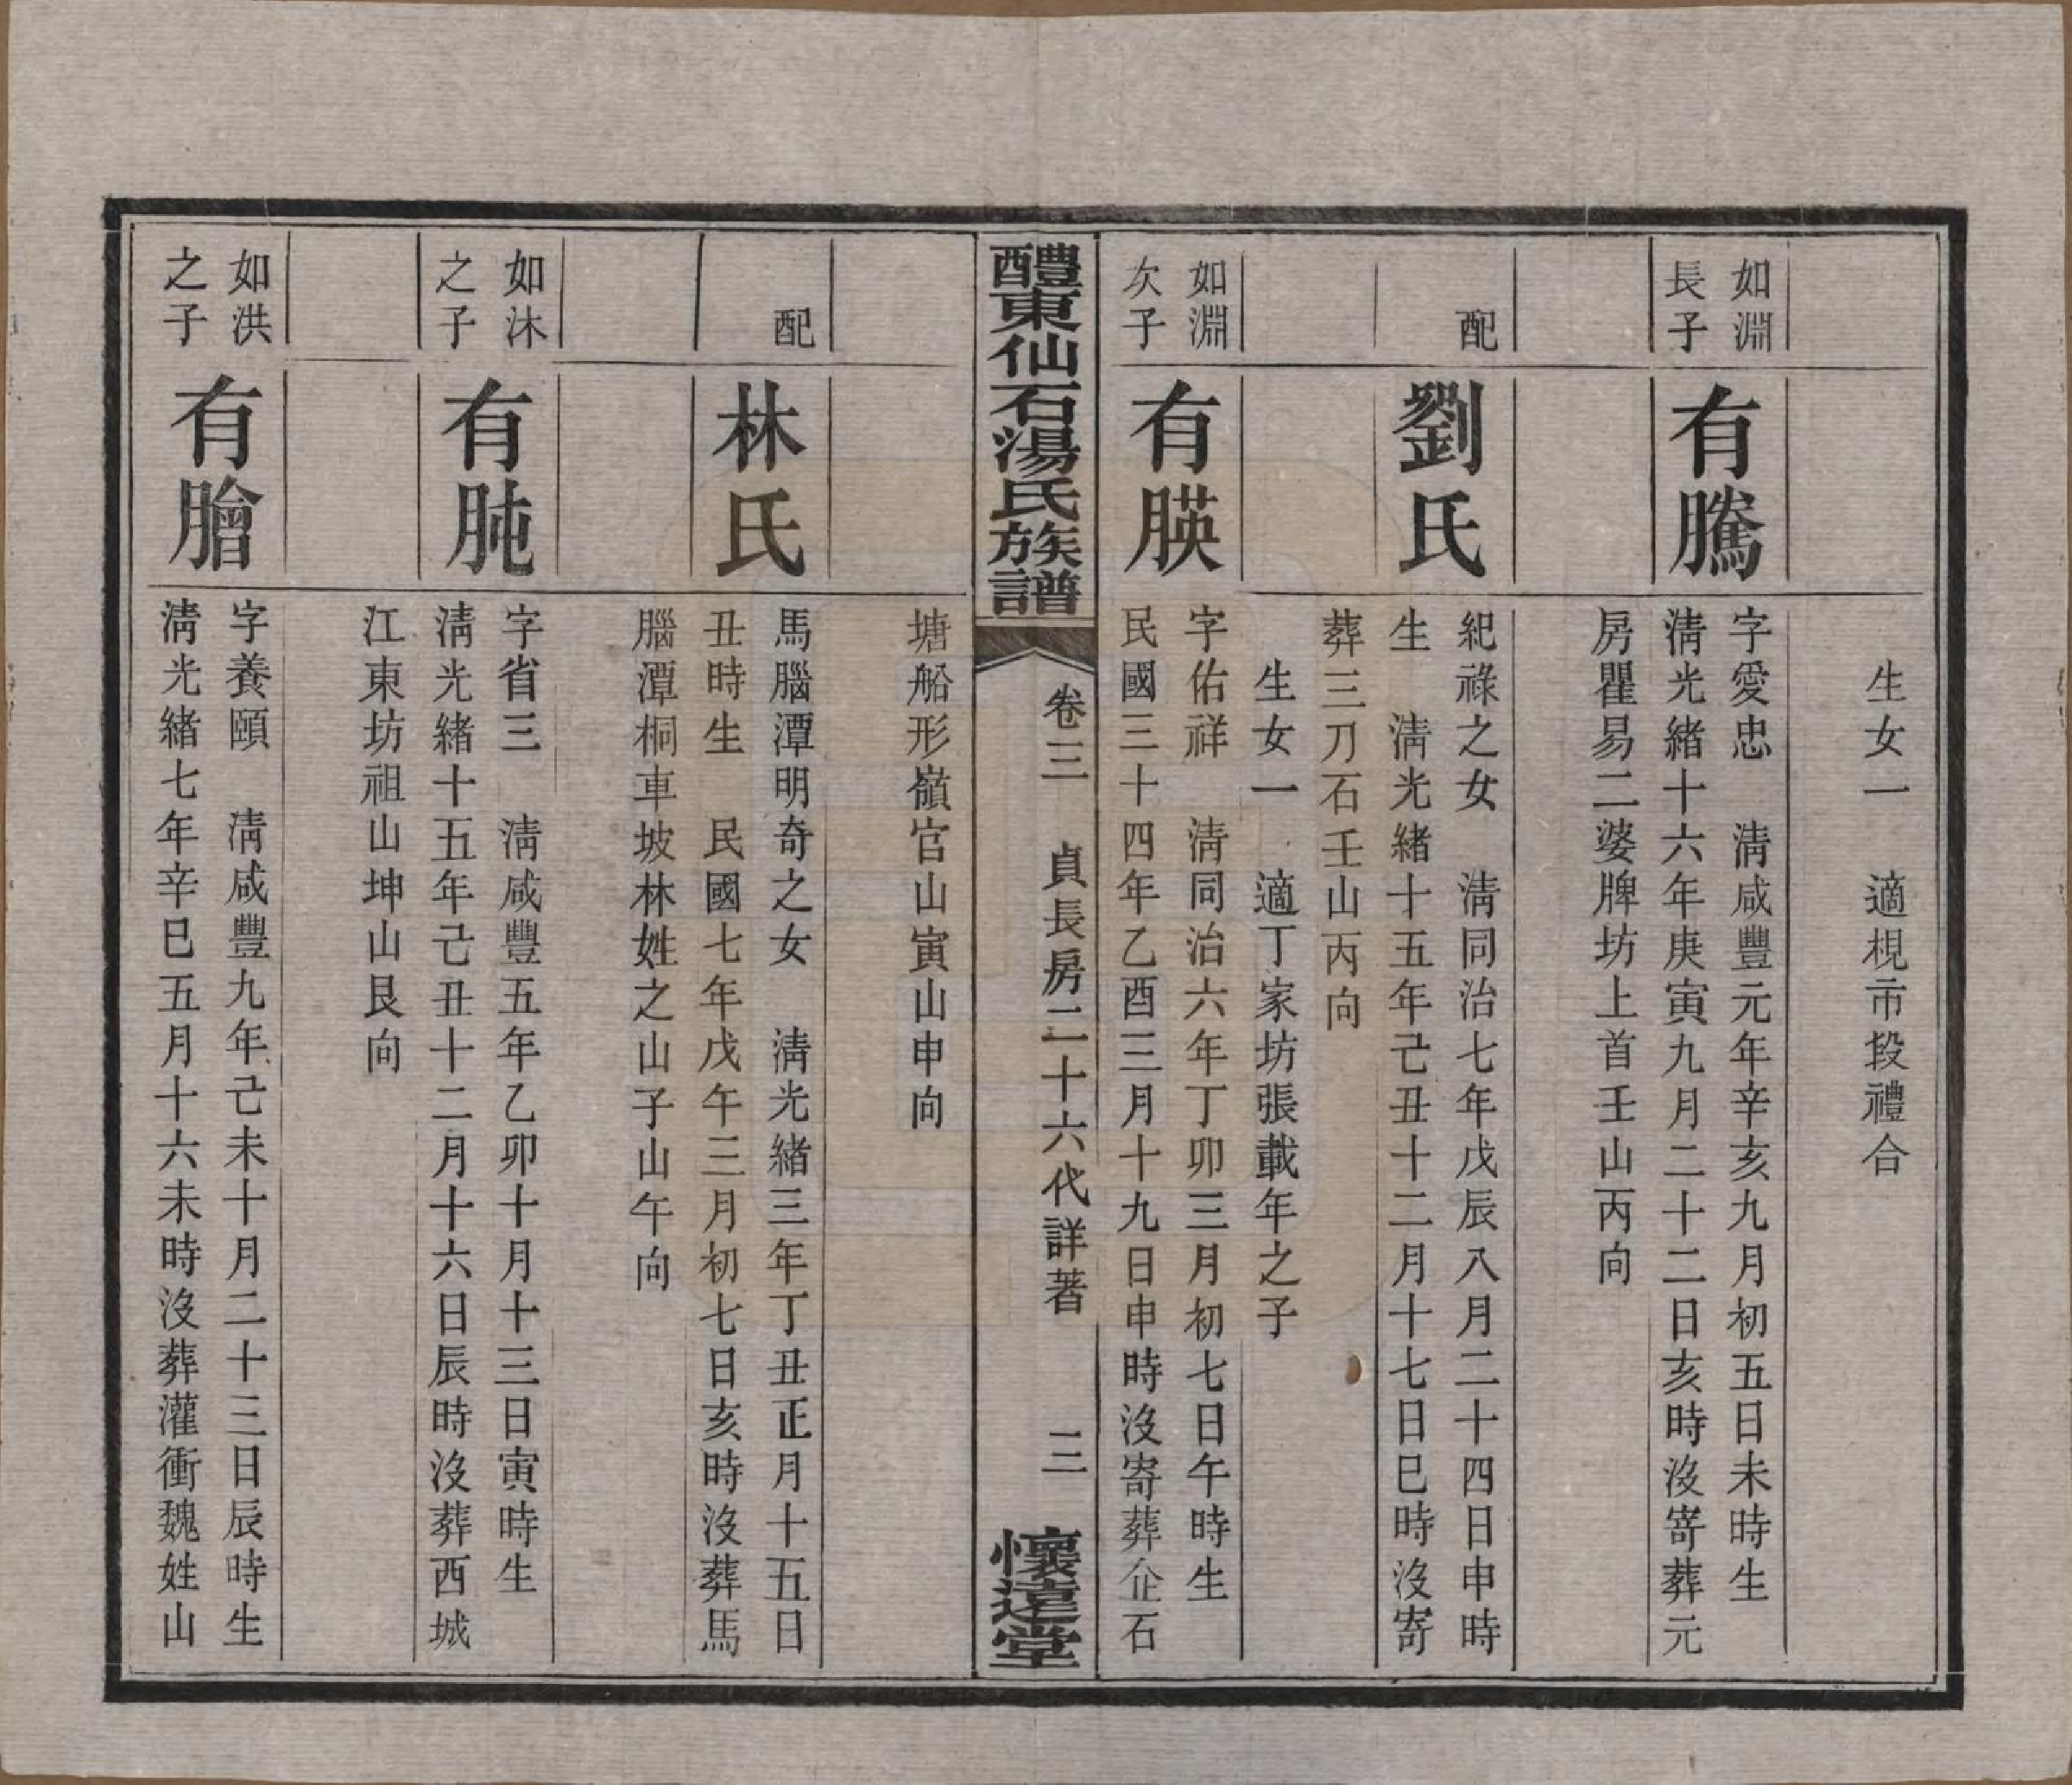 生女一　適梘市段禮合
如淵
長子
有騰
字愛忠　清咸豐元年辛亥九月初五日未時生
清光緒十六年庚寅九月二十二日亥時沒寄葬元
房瞿易二婆牌坊上首壬山丙向
配
劉氏
紀祿之女　清同治七年戊辰八月二十四日申時
生　清光緒十五年己丑十二月十七日巳時沒寄
葬三刀石壬山丙向
生女一　適丁家坊張載年之子
如淵
次子
有朠
字佑祥　清同治六年丁卯三月初七日午時生
民國三十四年乙酉三月十九日申時沒寄葬企石
醴東仙石湯氏族譜
卷三　貞長房二十六代詳著　三
懷遠堂
塘船形嶺官山寅山申向
配
林氏
馬腦潭明奇之女　清光緒三年丁丑正月十五日
丑時生　民國七年戊午三月初七日亥時沒葬馬
腦潭桐車坡林姓之山子山午向
如沐
之子
有肫
字省三　清咸豐五年乙卯十月十三日寅時生
清光緒十五年己丑十二月十六日辰時沒葬西城
江東坊祖山坤山艮向
如洪
之子
有膾
字養頤　清咸豐九年己未十月二十三日辰時生
清光緒七年辛巳五月十六未時沒葬灌衝魏姓山